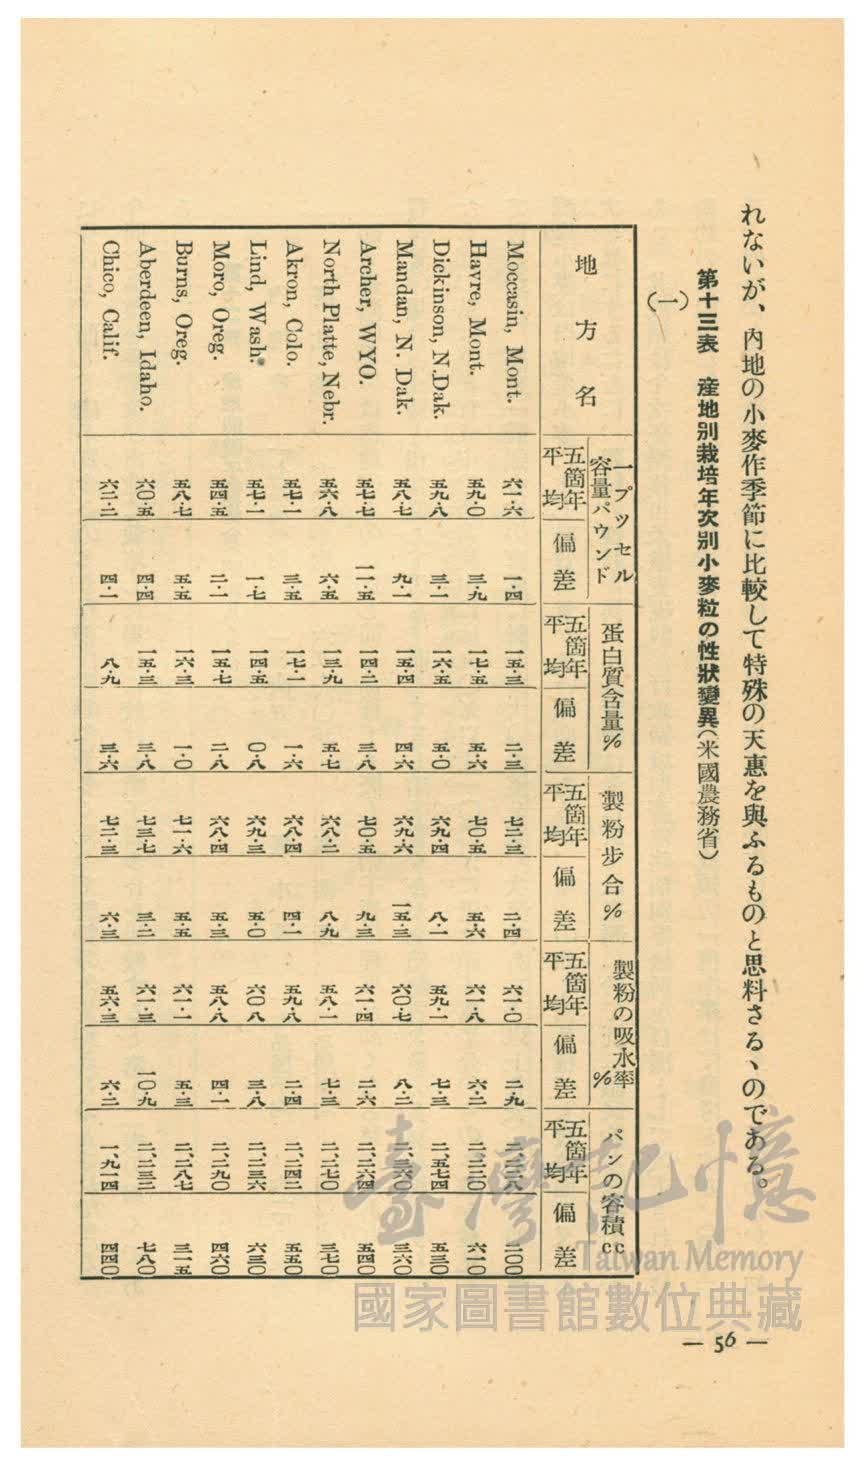 れないが、內地の小麥作季節に比較して特殊の天惠を與ふるものと思料さるゝのである。
第十三表　產地別栽培年次別小麥粒の性狀變異(米國農務省)
(一)
地方名　一ブッセル容量パウンド　蛋白質含量%　製粉步合%　製粉の吸水率%　パンの容積cc
五箇年平均　偏差　五箇年平均　偏差　五箇年平均　偏差　五箇年平均　偏差　五箇年平均　偏差
Moccasin, Mont.　六一·六　一·四　一五·三　二·三　七二·三　二·四　六一·〇　二·九　二、二二八　二〇〇
Havre, Mont.　五九·〇　三·九　一七·五　五·六　七〇·五　五·六　六一·八　六·二　二、二二〇　六一〇
Dickinson, N.Dak.　五九·八　三·一　一六·五　五·〇　六九·四　八·一　五九·一　七·三　二、五七四　五三〇
Mandan, N. Dak.　五八·七　九·一　一五·四　四·六　六九·六　一五·三　六〇·七　八·二　二、三六〇　三六〇
Archer, WYO.　五七·七　一一·五　一四·二　三·八　七〇·五　九·三　六一·四　二·六　二、二六四　五四〇
North Platte, Nebr.　五六·八　六·五　一三·九　五·七　六八·二　八·九　五八·一　七·三　二、一七〇　三七〇
Akron, Colo.　五七·一　三·五　一七·一　一·六　六八·四　四·一　五九·八　二·四　二、二四二　五五〇
Lind, Wash.　五七·一　一·七　一四·五　〇·八　六九·三　五·〇　六〇·八　三·八　二、二三六　六三〇
Moro, Oreg.　五四·五　二·一　一五·七　二·八　六八·四　五·三　五八·八　四·一　二、二九〇　四六〇
Burns, Oreg.　五八·七　五·五　一六·三　一·〇　七一·六　五·五　六一·一　五·三　二、二八七　三一五
Aberdeen, Idaho.　六〇·五　四·四　一五·三　三·八　七三·七　三·二　六一·三　一〇·九　二、二三二　七八〇
Chico, Calif.　六二·二　四·一　八·九　三·六　七二·三　六·三　五六·三　六·二　一、九一四　四四〇
臺灣記憶
Taiwan Memory
國家圖書館數位典藏
— 56 —